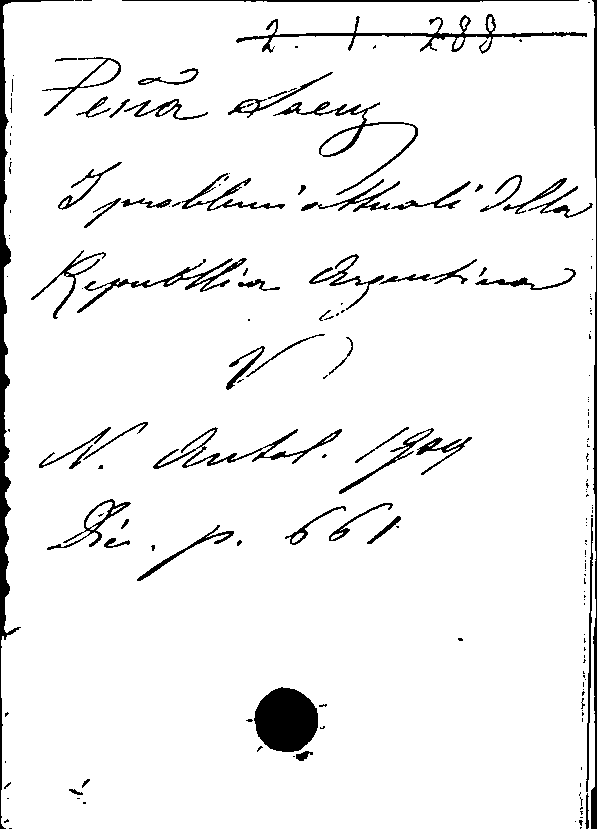 2. 1. 288.
Peña Saenz
I problemi attuali della
Repubblica Argentina
V )
N. Antol. 1909
Dic. p. 661